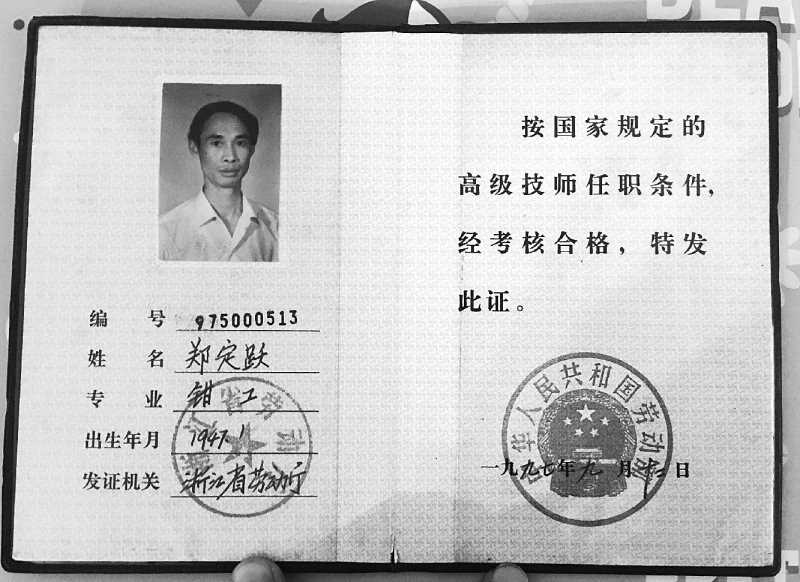 编 号 975000513
姓 名 郑定跃
专 业 钳工
出生年月 1947.11
发证机关 浙江省劳动厅
浙江省劳动
按国家规定的
高级技师任职条件,
经考核合格，特发
此证。
中华人民共和国劳动部
一九九七年九月十二日